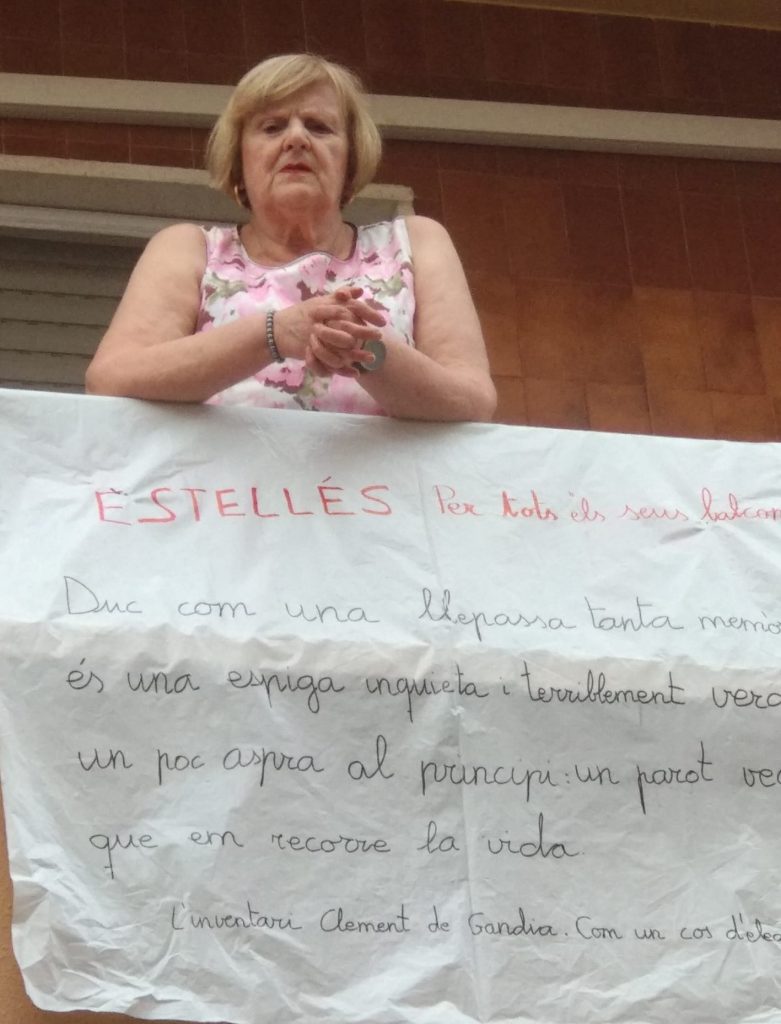 ESTELLÉS Per tots els seus balcon
Duc com una llepassa tanta memò
és una espiga inquieta i terriblement verd
un poc aspra al principi: un parot ve
que em recorre la vida.
L'inventari Clement de Gandia. Com un cos d'elec